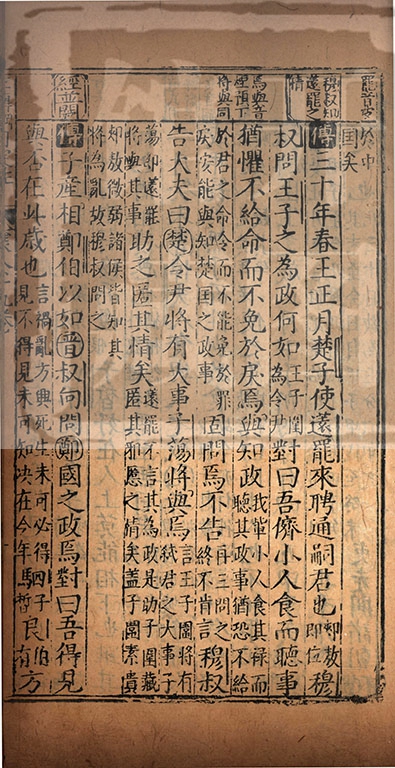 罷音皮
穆叔知
薳罷之
情
焉與音
煙預下
將與同
經並闕
於中
国矣
傳三十年春王正月楚子使薳罷來聘通嗣君也郟敖即位穆
叔問王子之為政何如王子圍為令尹對曰吾儕小人食而聽事
猶懼不給命而不免於戾焉與知政我輩小人食其禄而聽其政事猶恐不給
於君之命令而不能免於罪戾安能與知楚国之政事固問焉不告再三問之終不肯言穆叔
告大夫曰楚令尹將有大事子蕩將與焉言王子圍將有弑君之大事子
蕩即薳罷將與其事助之匿其情矣薳罷不言其為政是助子圍藏匿其邪慝之情矣盖子圍素貴
郟敖微弱諸侯皆知其將為亂故穆叔問之
傳子產相鄭伯以如晉叔向問鄭國之政焉對曰吾得見
與否在此歳也言禍亂方興死生未可必得見不得見未可知决在今年駟子皙良伯有方